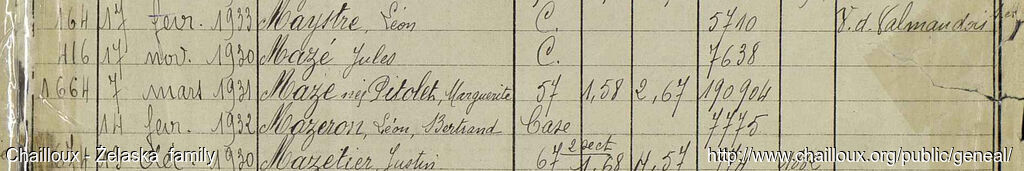 164 17 fevr. 1933 Maystre, Léon C. 5710 V. d. Valmandois
416 17 nov. 1930 Mazé Jules C. 7638
1.664 7 mars 1931 Mazé née Pitolet, Marguerite 57 1,58 2,67 190904
14 fevr. 1932 Mazeron, Léon, Bertrand Case 7775
1930 Mazetier, Justin 67 2 sect 1,68 4,57
Chailloux - Żelaska family
http://www.chailloux.org/public/geneal/